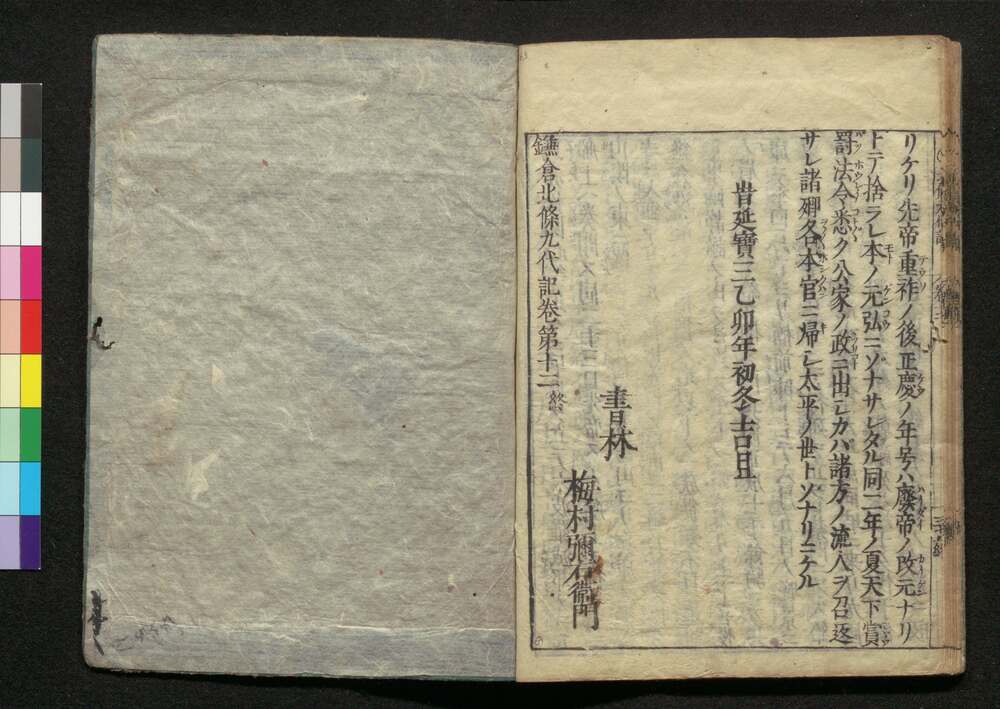 リケリ先帝重祚ノ後正慶ノ年号ハ廢帝ノ改元ナリ
トテ捨ラレ本ノ元弘ニソナサレタル同二年ノ夏天下賞
罸法令悉ク公家ノ政ニ出シカバ諸方ノ流人ヲ召返
サレ諸卿各本官ニ帰シ太平ノ世トソナリニケル
旹延寶三乙卯年初冬吉旦
書林
梅村彌右衛門
鎌倉北條九代記卷第十二終